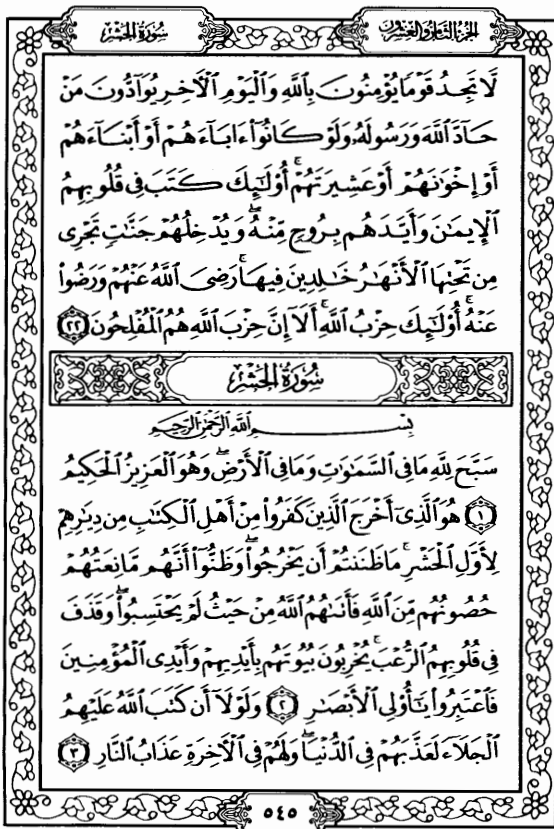 سُورَةُ الحَشْرِ
الجُزْءُ الثَّامِنُ وَالعِشْرُونَ
لَّا تَجِدُ قَوْمًا يُؤْمِنُونَ بِٱللَّهِ وَٱلْيَوْمِ ٱلْأَخِرِ يُوَآدُّونَ مَنْ
حَآدَّ ٱللَّهَ وَرَسُولَهُۥ وَلَوْ كَانُوٓا۟ ءَابَآءَهُمْ أَوْ أَبْنَآءَهُمْ
أَوْ إِخْوَٰنَهُمْ أَوْ عَشِيرَتَهُمْ ۚ أُو۟لَٰٓئِكَ كَتَبَ فِى قُلُوبِهِمُ
ٱلْإِيمَٰنَ وَأَيَّدَهُم بِرُوحٍ مِّنْهُ ۖ وَيُدْخِلُهُمْ جَنَّٰتٍ تَجْرِى
مِن تَحْتِهَا ٱلْأَنْهَٰرُ خَٰلِدِينَ فِيهَا ۚ رَضِىَ ٱللَّهُ عَنْهُمْ وَرَضُوا۟
عَنْهُ ۚ أُو۟لَٰٓئِكَ حِزْبُ ٱللَّهِ ۚ أَلَآ إِنَّ حِزْبَ ٱللَّهِ هُمُ ٱلْمُفْلِحُونَ ٢٢
سُورَةُ الحَشْرِ
بِسْمِ ٱللَّهِ ٱلرَّحْمَٰنِ ٱلرَّحِيمِ
سَبَّحَ لِلَّهِ مَا فِى ٱلسَّمَٰوَٰتِ وَمَا فِى ٱلْأَرْضِ ۖ وَهُوَ ٱلْعَزِيزُ ٱلْحَكِيمُ
١ هُوَ ٱلَّذِىٓ أَخْرَجَ ٱلَّذِينَ كَفَرُوا۟ مِنْ أَهْلِ ٱلْكِتَٰبِ مِن دِيَٰرِهِمْ
لِأَوَّلِ ٱلْحَشْرِ ۚ مَا ظَنَنتُمْ أَن يَخْرُجُوا۟ ۖ وَظَنُّوٓا۟ أَنَّهُم مَّانِعَتُهُمْ
حُصُونُهُم مِّنَ ٱللَّهِ فَأَتَىٰهُمُ ٱللَّهُ مِنْ حَيْثُ لَمْ يَحْتَسِبُوا۟ ۖ وَقَذَفَ
فِى قُلُوبِهِمُ ٱلرُّعْبَ ۚ يُخْرِبُونَ بُيُوتَهُم بِأَيْدِيهِمْ وَأَيْدِى ٱلْمُؤْمِنِينَ
فَٱعْتَبِرُوا۟ يَٰٓأُو۟لِى ٱلْأَبْصَٰرِ ٢ وَلَوْلَآ أَن كَتَبَ ٱللَّهُ عَلَيْهِمُ
ٱلْجَلَآءَ لَعَذَّبَهُمْ فِى ٱلدُّنْيَا ۖ وَلَهُمْ فِى ٱلْأَخِرَةِ عَذَابُ ٱلنَّارِ ٣
٥٤٥